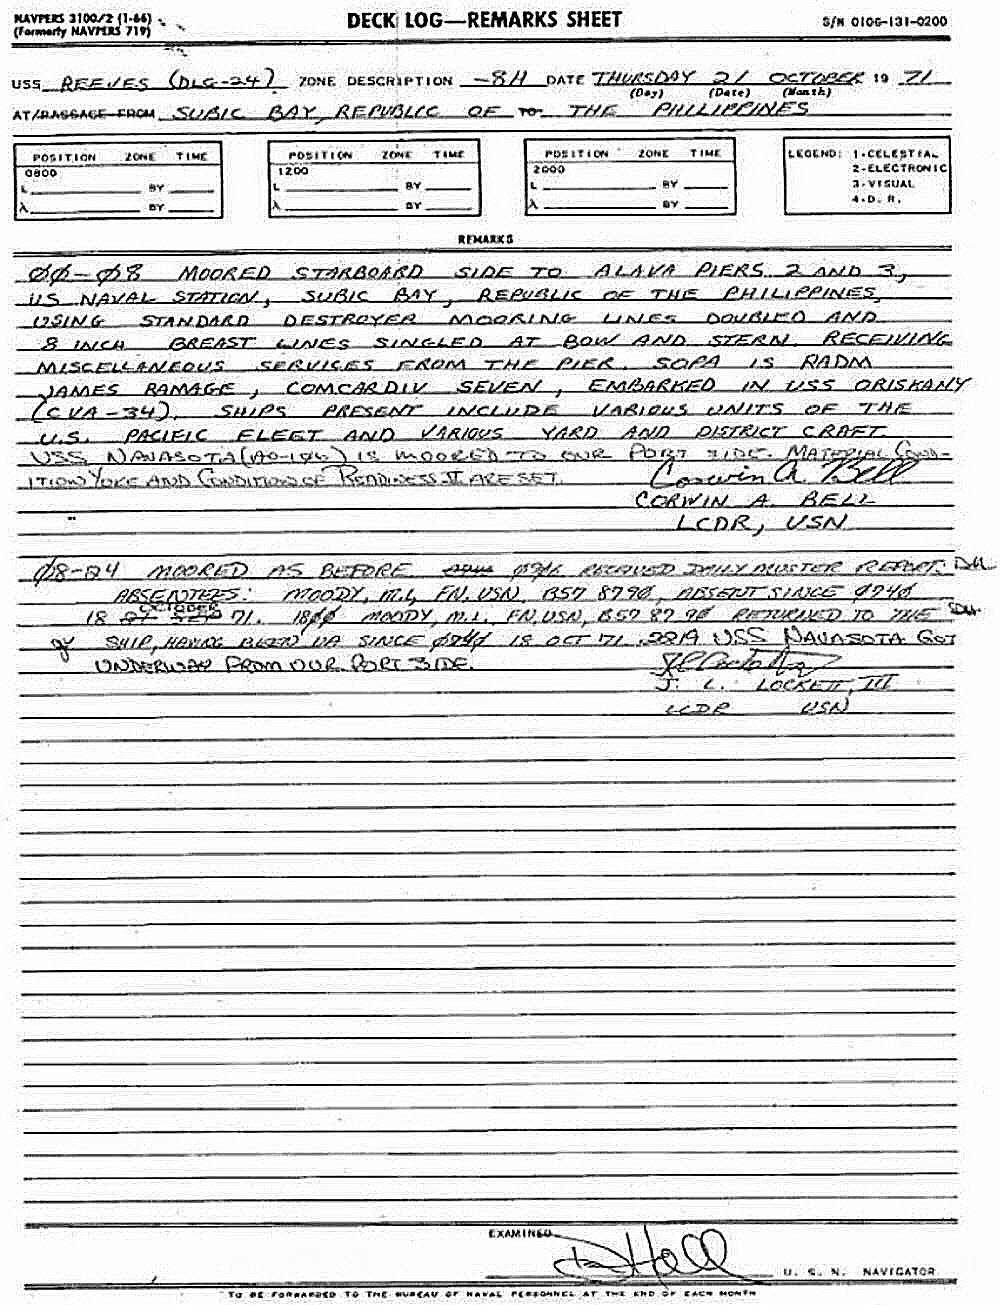 NAVPERS 3100/2 (1-66)
(Formerly NAVPERS 719)
DECK LOG—REMARKS SHEET
S/N 0106-131-0200
USS REEVES (DLG-24) ZONE DESCRIPTION -8H DATE THURSDAY 21 OCTOBER 19 71
(Day) (Date) (Month)
AT/PASSAGE FROM SUBIC BAY, REPUBLIC OF TO THE PHILIPPINES
POSITION ZONE TIME
0800
L BY
λ BY
POSITION ZONE TIME
1200
L BY
λ BY
POSITION ZONE TIME
2000
L BY
λ BY
LEGEND: 1-CELESTIAL
2-ELECTRONIC
3-VISUAL
4-D. R.
REMARKS
00-08 MOORED STARBOARD SIDE TO ALAVA PIERS 2 AND 3,
US NAVAL STATION, SUBIC BAY, REPUBLIC OF THE PHILIPPINES,
USING STANDARD DESTROYER MOORING LINES DOUBLED AND
8 INCH BREAST LINES SINGLED AT BOW AND STERN. RECEIVING
MISCELLANEOUS SERVICES FROM THE PIER. SOPA IS RADM
JAMES RAMAGE, COMCARDIV SEVEN, EMBARKED IN USS ORISKANY
(CVA-34). SHIPS PRESENT INCLUDE VARIOUS UNITS OF THE
U.S. PACIFIC FLEET AND VARIOUS YARD AND DISTRICT CRAFT.
USS NAVASOTA (AO-106) IS MOORED TO OUR PORT SIDE. MATERIAL COND-
ITION YOKE AND CONDITION OF READINESS ARE SET. Corwin A. Bell
CORWIN A. BELL
LCDR, USN
08-24 MOORED AS BEFORE RECEIVED DAILY MUSTER REPORT:
ABSENTEES: MOODY, M.L, FN, USN, B57 87 90, ABSENT SINCE 0740
18 OCTOBER 71. 1800 MOODY, M.L. FN, USN, B57 87 90 RETURNED TO THE
SHIP, HAVING BEEN UA SINCE 0740 18 OCT 71. 2219 USS NAVASOTA GOT
UNDERWAY FROM OUR PORT SIDE.
J. L. LOCKETT, III
LCDR USN
EXAMINED
U. S. N. NAVIGATOR
TO BE FORWARDED TO THE BUREAU OF NAVAL PERSONNEL AT THE END OF EACH MONTH